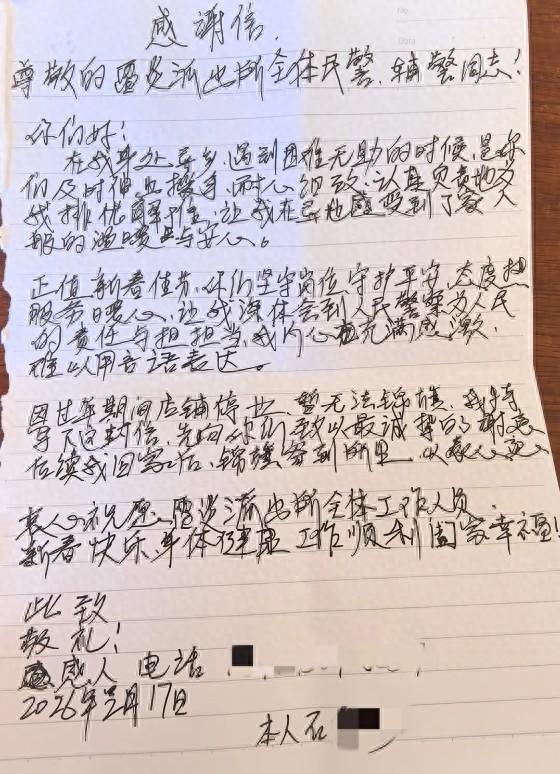 感谢信.
尊敬的霞炎派出所全体民警、辅警同志!
你们好!
在我身处异乡,遇到困难无助的时候,是你
们及时伸出援手,耐心细致、认真负责地为
我排优解难,让我在异地感受到了家人
般的温暖与安心。
正值新春佳节,你们坚守岗位守护平安,态度
服务暖心,让我深体会到人民警察为人民
的责任与担担当,我内心充满感激,
难以用言语表达。
因过年期间店铺停业,暂无法锦旗,我特
写下这封信,先向你们致以最诚挚的谢意
后续我回家后,锦旗寄到所里,以表心意
衷心祝愿 派出所全体工作人员
新春快乐、身体健康 工作顺利 阖家幸福!
此致
敬礼!
感人 电话
2026年2月17日
本人石